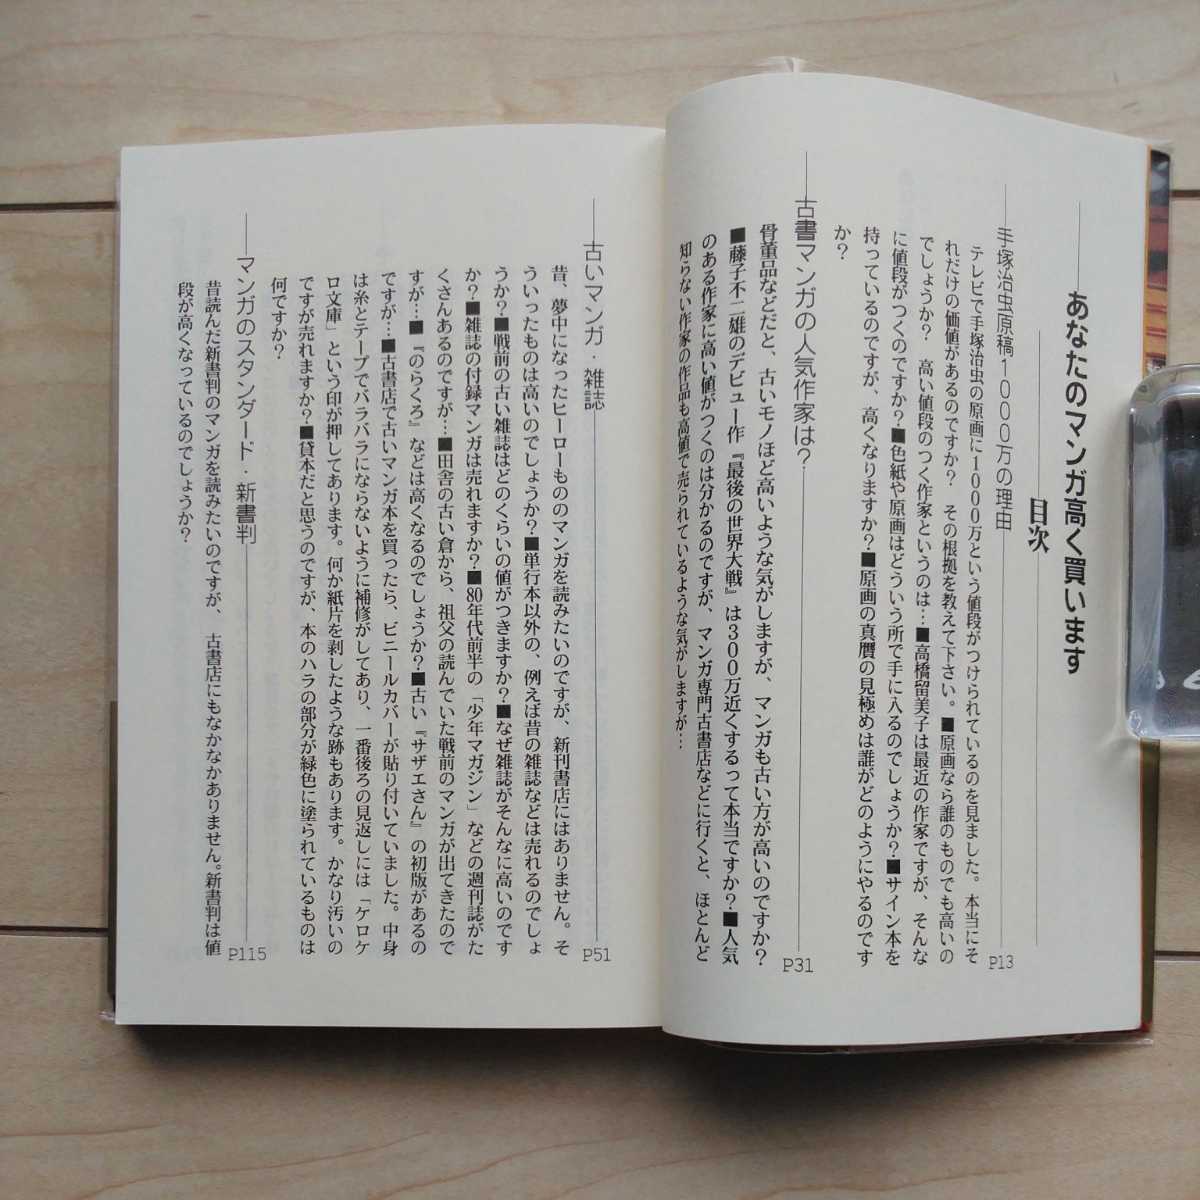 あなたのマンガ高く買います
目次
手塚治虫原稿1000万の理由
P13
テレビで手塚治虫の原画に1000万という値段がつけられているのを見ました。本当にそ
れだけの価値があるのですか？　その根拠を教えて下さい。■原画なら誰のものでも高いの
でしょうか？　高い値段のつく作家というのは…■高橋留美子は最近の作家ですが、そんな
に値段がつくのですか？■色紙や原画はどういう所で手に入るのでしょうか？■サイン本を
持っているのですが、高くなりますか？■原画の真贋の見極めは誰がどのようにやるのです
か？
古書マンガの人気作家は？
P31
骨董品などだと、古いモノほど高いような気がしますが、マンガも古い方が高いのですか？
■藤子不二雄のデビュー作『最後の世界大戦』は300万近くするって本当ですか？■人気
のある作家に高い値がつくのは分かるのですが、マンガ専門古書店などに行くと、ほとんど
知らない作家の作品も高値で売られているような気がしますが…
古いマンガ・雑誌
P51
昔、夢中になったヒーローもののマンガを読みたいのですが、新刊書店にはありません。そ
ういったものは高いのでしょうか？■単行本以外の、例えば昔の雑誌などは売れるのでしょ
うか？■戦前の古い雑誌はどのくらいの値がつきますか？■なぜ雑誌がそんなに高いのです
か？■雑誌の付録マンガは売れますか？■80年代前半の「少年マガジン」などの週刊誌がた
くさんあるのですが…■田舎の古い倉から、祖父の読んでいた戦前のマンガが出てきたので
すが…■『のらくろ』などは高くなるのでしょうか？■古い『サザエさん』の初版があるの
ですが…■古書店で古いマンガ本を買ったら、ビニールカバーが貼り付いていました。中身
は糸とテープでバラバラにならないように補修がしてあり、一番後ろの見返しには「ケロケ
ロ文庫」という印が押してあります。何か紙片を剥したような跡もあります。かなり汚いの
ですが売れますか？■貸本だと思うのですが、本のハラの部分が緑色に塗られているものは
何ですか？
マンガのスタンダード・新書判
P115
昔読んだ新書判のマンガを読みたいのですが、　古書店にもなかなかありません。新書判は値
段が高くなっているのでしょうか？